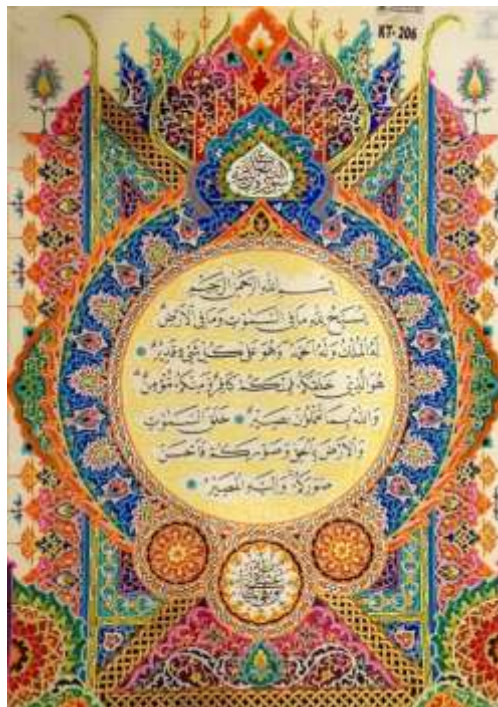 KT- 206
بسم الله الرحمن الرحيم
يسبح لله ما في السموت وما في الأرض
له الملك وله الحمد وهو على كل شيء قدير
هو الذي خلقكم فمنكم كافر ومنكم مؤمن
والله بما تعملون بصير خلق السموت
والأرض بالحق وصوركم فأحسن
صوركم وإليه المصير